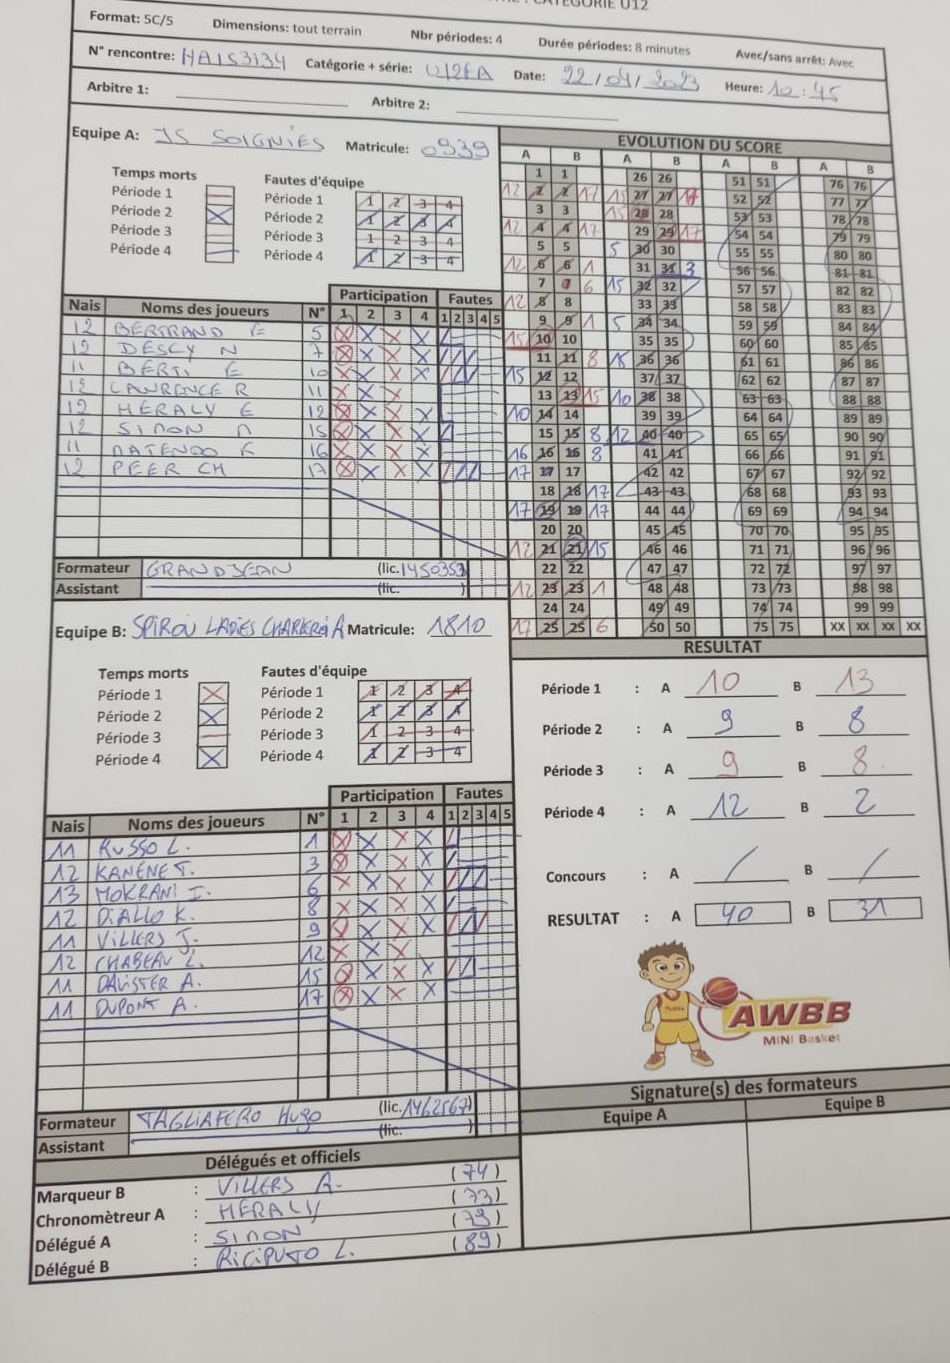 : CATEGORIE U12
Format: 5C/5 Dimensions: tout terrain Nbr périodes: 4 Durée périodes: 8 minutes Avec/sans arrêt: Avec
N° rencontre: HAIS3134 Catégorie + série: U12FA Date: 22/04/2023 Heure: 10:45
Arbitre 1: Arbitre 2:
Equipe A: JS SOIGNIES Matricule: 0939
Temps morts Fautes d'équipe
Période 1 Période 1 1 2 3 4
Période 2 Période 2 1 2 3 4
Période 3 Période 3 1 2 3 4
Période 4 Période 4 1 2 3 4
Participation Fautes
Nais Noms des joueurs N° 1 2 3 4 1 2 3 4 5
12 BERTRAND E 5 X X X X
12 DESCY N 7 X X X X
11 BERTI E 10 X X X X
12 LAWRENCE R 11 X X X
12 HERALY E 12 X X X X
12 SIMON M 15 X X X X
11 MATENDO K 16 X X X X
12 PEER CH 17 X X X X
Formateur GRANDJEAN (lic. 1450353)
Assistant (lic. )
Equipe B: SPIROU LADIES CHARLEROI A Matricule: 1810
Temps morts Fautes d'équipe
Période 1 X Période 1 1 2 3 4
Période 2 X Période 2 1 2 3 4
Période 3 Période 3 1 2 3 4
Période 4 X Période 4 1 2 3 4
Participation Fautes
Nais Noms des joueurs N° 1 2 3 4 1 2 3 4 5
11 RUSSO L. 1 X X X X
12 KANENE T. 3 X X X X
13 MOKRANI I. 6 X X X X
12 DIALLO K. 8 X X X X
11 VILLERS J. 9 X X X X
12 CHABEAU L. 12 X X X
11 DAUSTER A. 15 X X X X
11 DUPONT A. 17 X X X X
Formateur TAGLIAFERO Hugo (lic. 1462567)
Assistant (lic. )
Délégués et officiels
Marqueur B : VILLERS A. (74)
Chronomètreur A : HERALY (73)
Délégué A : SIMON (79)
Délégué B : RICIPUTO L. (89)
EVOLUTION DU SCORE
A B A B A B A B
1 1 26 26 51 51 76 76
12 2 2 17 15 27 27 17 52 52 77 77
3 3 15 28 28 53 53 78 78
12 4 4 17 29 29 17 54 54 79 79
5 5 5 30 30 55 55 80 80
12 6 6 1 31 31 3 56 56 81 81
7 7 6 15 32 32 57 57 82 82
12 8 8 33 33 58 58 83 83
9 9 1 5 34 34 59 59 84 84
15 10 10 35 35 60 60 85 85
11 11 8 15 36 36 61 61 86 86
15 12 12 37 37 62 62 87 87
13 13 15 10 38 38 63 63 88 88
10 14 14 39 39 64 64 89 89
15 15 8 12 40 40 65 65 90 90
16 16 16 8 41 41 66 66 91 91
17 17 17 42 42 67 67 92 92
18 18 17 43 43 68 68 93 93
17 19 19 17 44 44 69 69 94 94
20 20 45 45 70 70 95 95
12 21 21 15 46 46 71 71 96 96
22 22 47 47 72 72 97 97
12 23 23 1 48 48 73 73 98 98
24 24 49 49 74 74 99 99
17 25 25 6 50 50 75 75 XX XX XX XX
RESULTAT
Période 1 : A 10 B 13
Période 2 : A 9 B 8
Période 3 : A 9 B 8
Période 4 : A 12 B 2
Concours : A / B /
RESULTAT : A 40 B 31
AWBB
MiNi Basket
Signature(s) des formateurs
Equipe A Equipe B